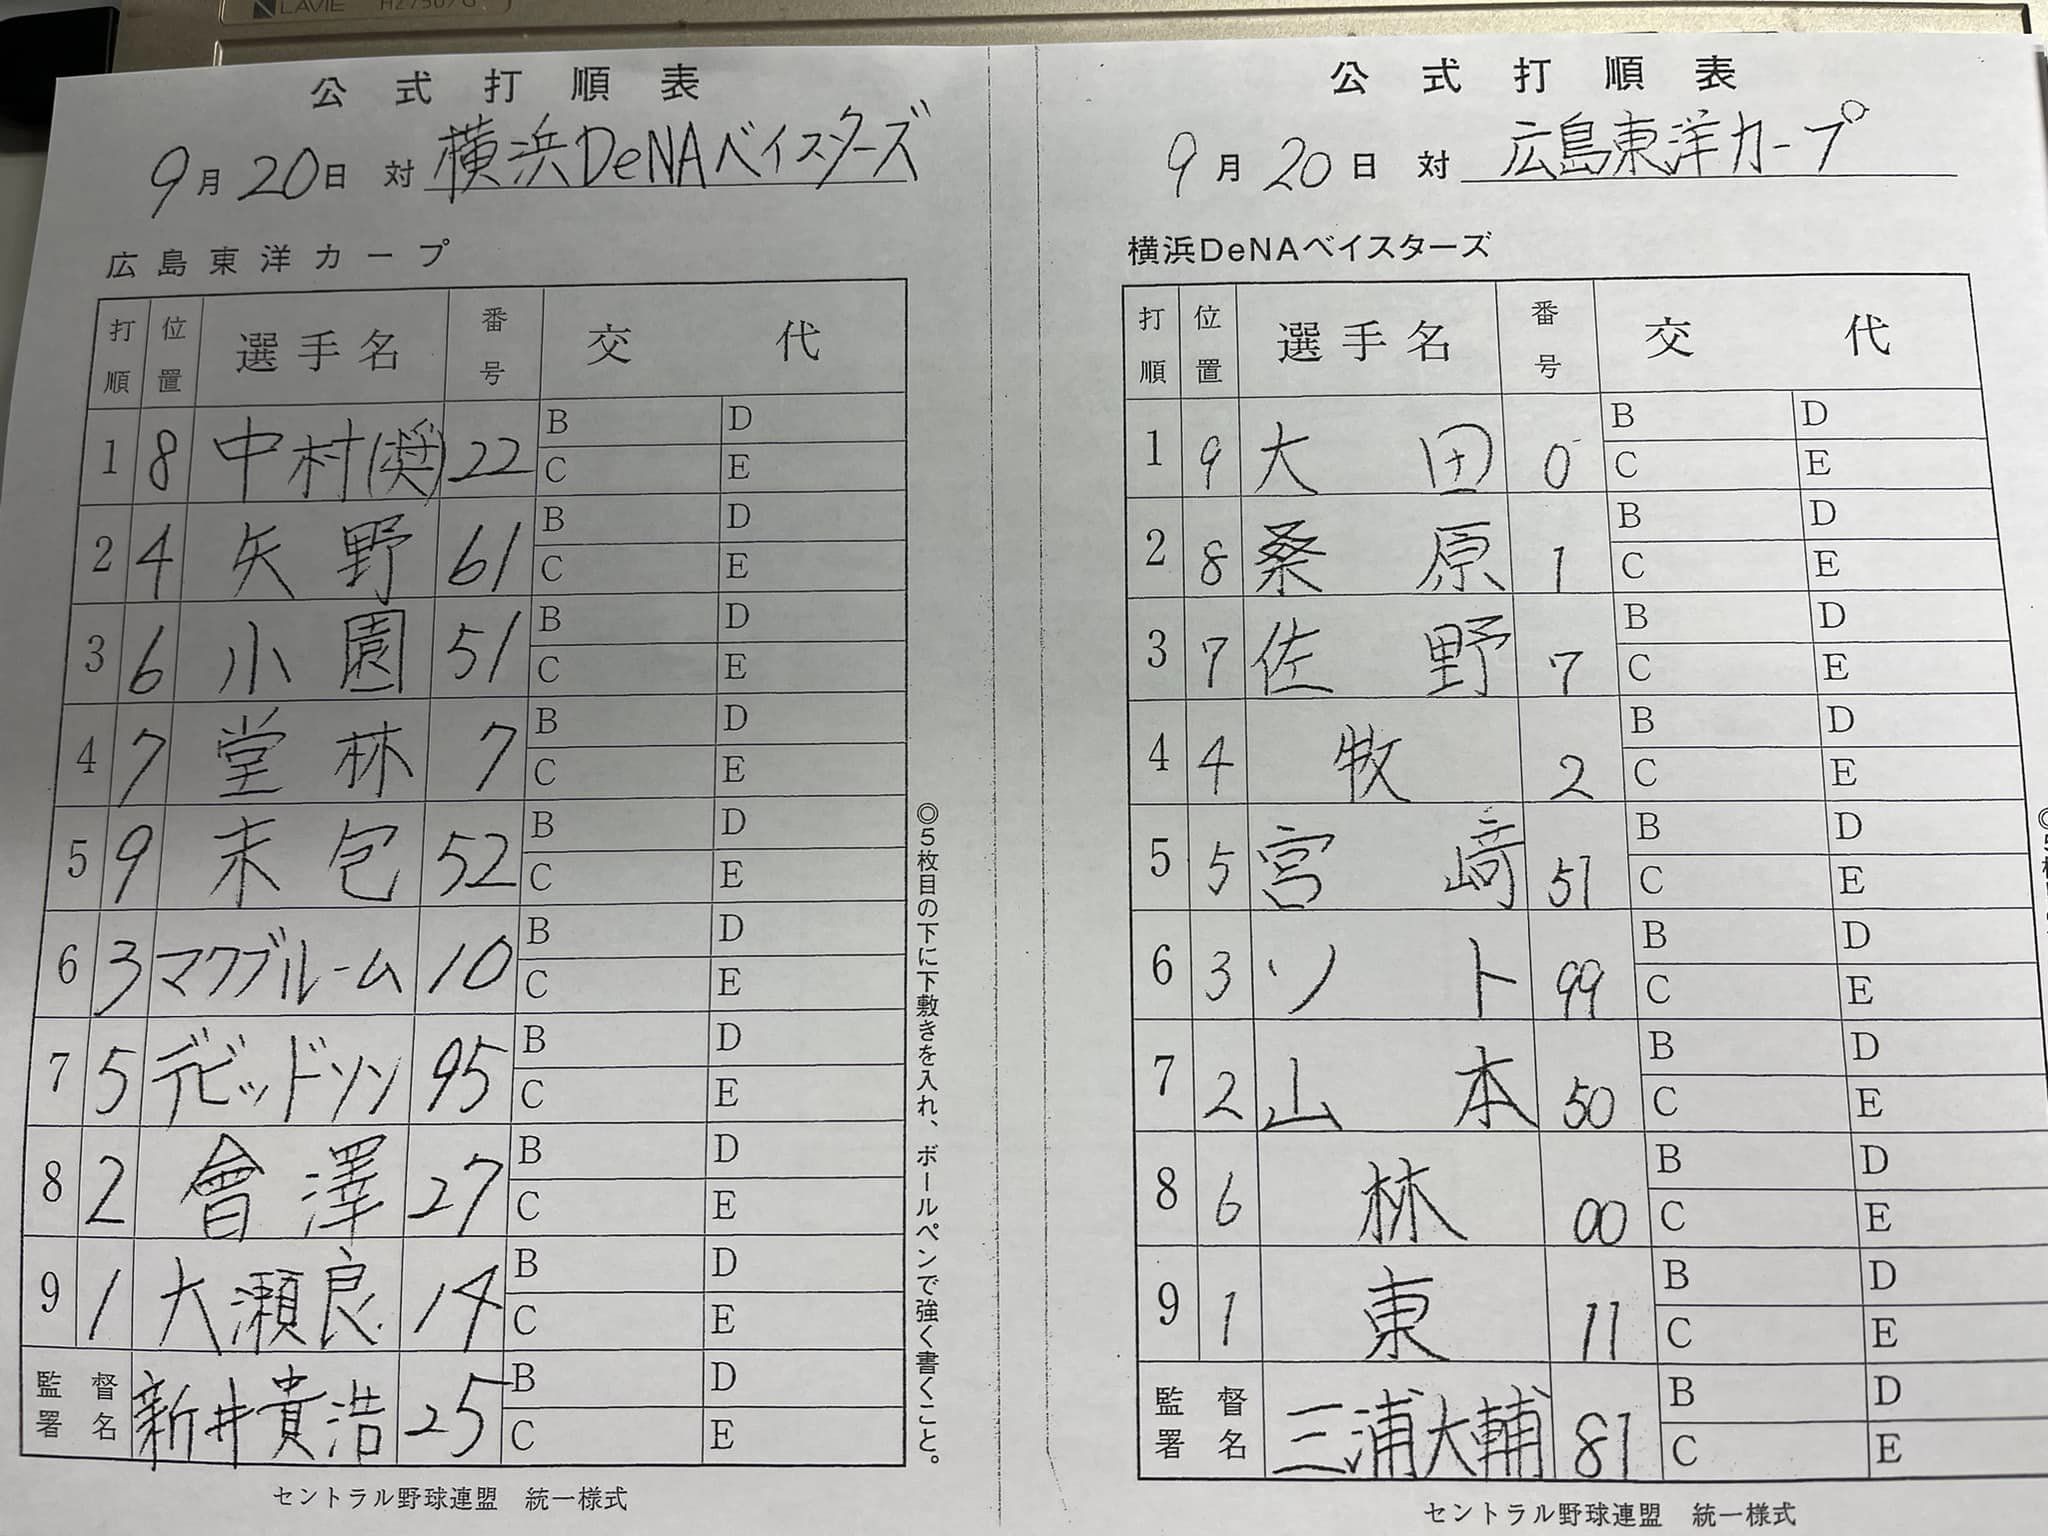 LAVIE
公式打順表
9月20日 対 横浜DeNAベイスターズ
広島東洋カープ
打順 位置 選手名 番号 交代
1 8 中村(奨) 22 B D
C E
2 4 矢野 61 B D
C E
3 6 小園 51 B D
C E
4 7 堂林 7 B D
C E
5 9 末包 52 B D
C E
6 3 マクブルーム 10 B D
C E
7 5 デビッドソン 95 B D
C E
8 2 會澤 27 B D
C E
9 1 大瀬良 14 B D
C E
監督署名 新井貴浩 25 B D
C E
◎5枚目の下に下敷きを入れ、ボールペンで強く書くこと。
セントラル野球連盟 統一様式
公式打順表
9月20日 対 広島東洋カープ
横浜DeNAベイスターズ
打順 位置 選手名 番号 交代
1 9 大田 0 B D
C E
2 8 桑原 1 B D
C E
3 7 佐野 7 B D
C E
4 4 牧 2 B D
C E
5 5 宮﨑 51 B D
C E
6 3 ソト 99 B D
C E
7 2 山本 50 B D
C E
8 6 林 00 B D
C E
9 1 東 11 B D
C E
監督署名 三浦大輔 81 B D
C E
セントラル野球連盟 統一様式